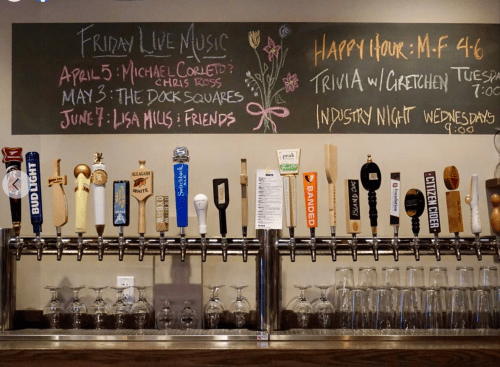 FRIDAY LIVE MUSIC
APRIL 5: MICHAEL CORLETO &
CHRIS ROSS
MAY 3: THE DOCK SQUARES
JUNE 7: LISA MILLS & FRIENDS
HAPPY HOUR: M-F 4-6
TRIVIA w/ GRETCHEN TUESDAY
7:00
INDUSTRY NIGHT WEDNESDAYS
9:00
BUD LIGHT
ALLAGASH
WHITE
Switchback
ALE
peak
BANDED
ISLAND DOG
CITIZEN CIDER